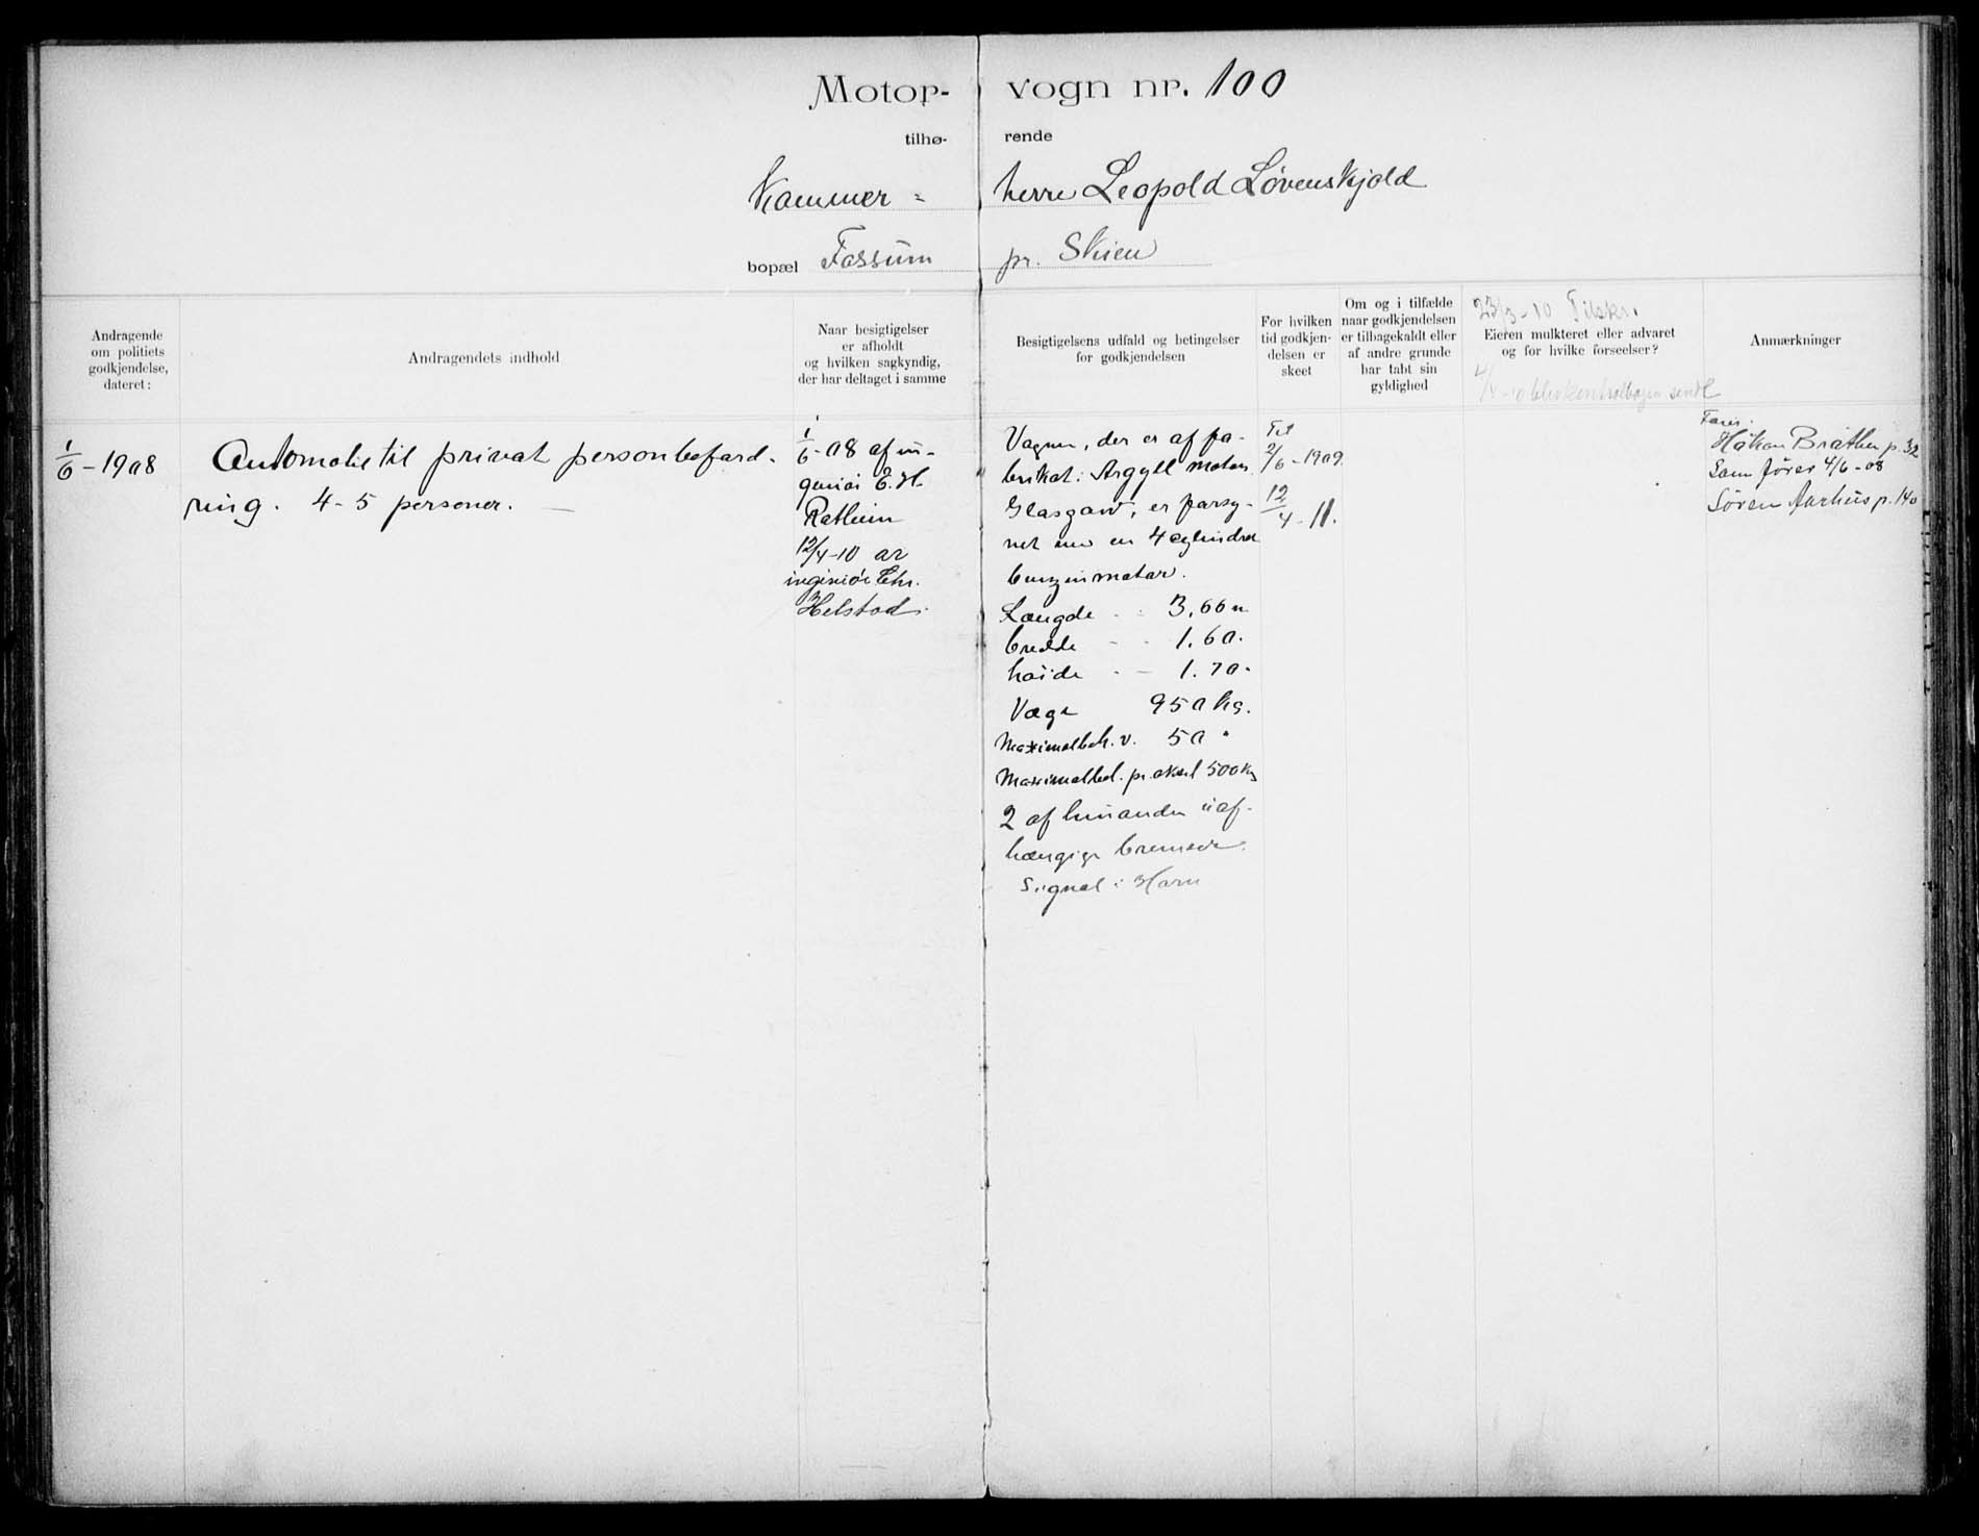 Motor- vogn nr. 100
tilhø- rende
Kammer= herre Leopold Løvenskjold
bopæl Fossum pr. Skien
Andragende
om politiets
godkjendelse,
dateret:
Andragendets indhold
Naar besigtigelser
er afholdt
og hvilken sagkyndig,
der har deltaget i samme
Besigtigelsens udfald og betingelser
for godkjendelsen
For hvilken
tid godkjen-
delsen er
skeet
Om og i tilfælde
naar godkjendelsen
er tilbagekaldt eller
af andre grunde
har tabt sin
gyldighed
23/3-10 Tilskr.
Eieren mulkteret eller advaret
og for hvilke forseelser?
sendt
Anmærkninger
1/6-1908
Automobil til privat personbeford-
ring. 4-5 personer.
1/6-08 af in-
geniør E. H.
Rathein
12/4-10 av
ingeniør Chr.
Helstad.
Vognen, der er af fa-
brikat: Argyll motors
Glasgow, er forsy-
net med en 4 cylindret
benzinmotor.
Længde 3,66 m
bredde 1.60.
høide 1.70.
Vægt 950 kg.
Maximalbel. v. 50 "
Maximalbel. pr. aksel 500 kg
2 af hinanden uaf-
hængige bremser.
Signal: Horn
Til
2/6-1909
12/4-11.
Fører:
Håkon Bråthen p. 32
Som fører 4/6-08
Søren Aarhus p. 140